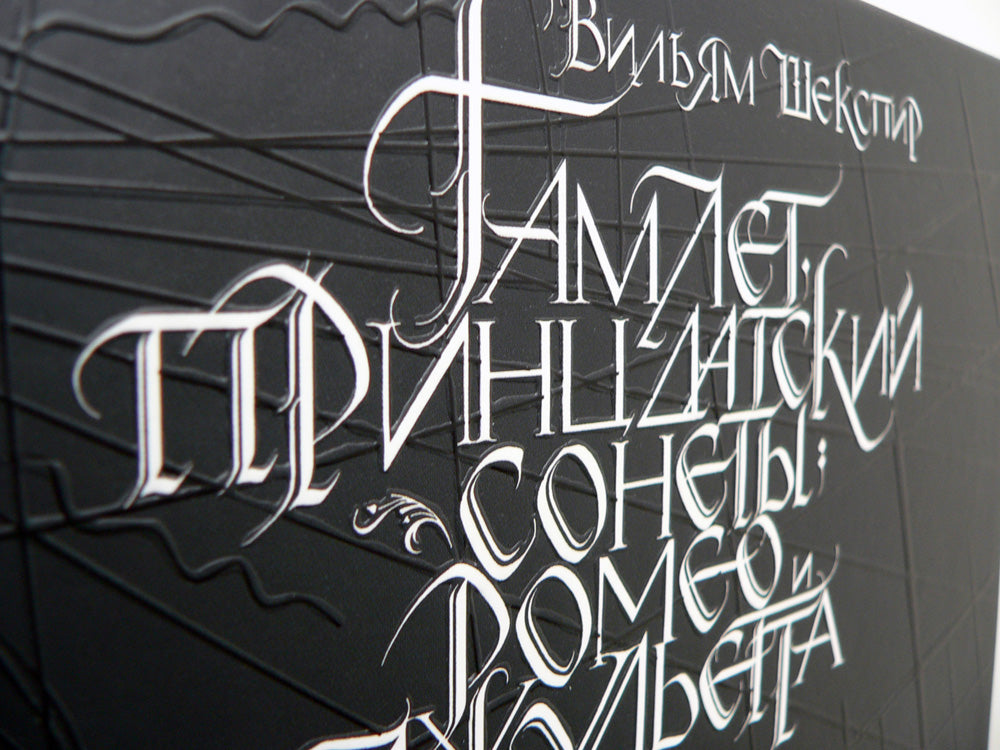 Вильям Шекспир
Гамлет,
принц датский
сонеты;
Ромео и
Джульетта